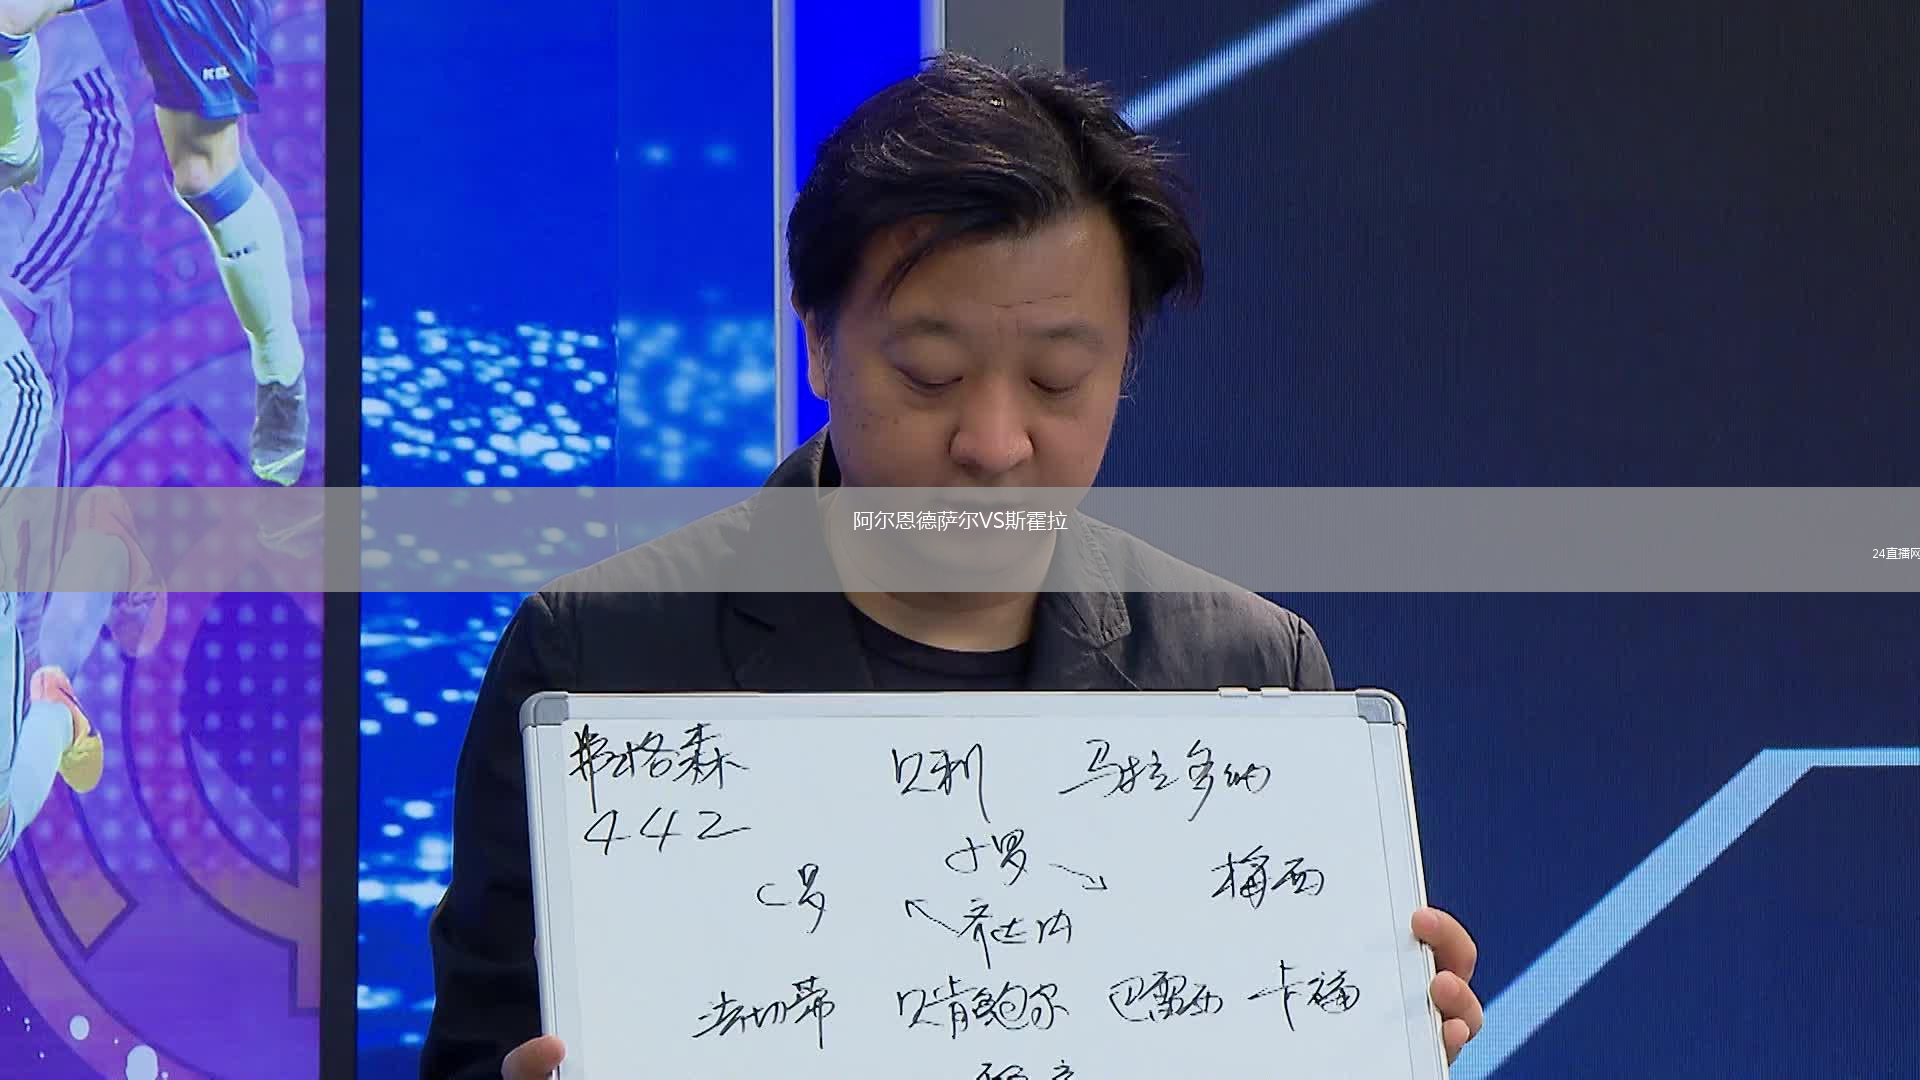 KEL
阿尔恩德萨尔VS斯霍拉
24直播网
弗格森 贝利 马拉多纳
442
小罗
C罗 梅西
齐达内
法切蒂 贝肯鲍尔 巴雷西 卡福